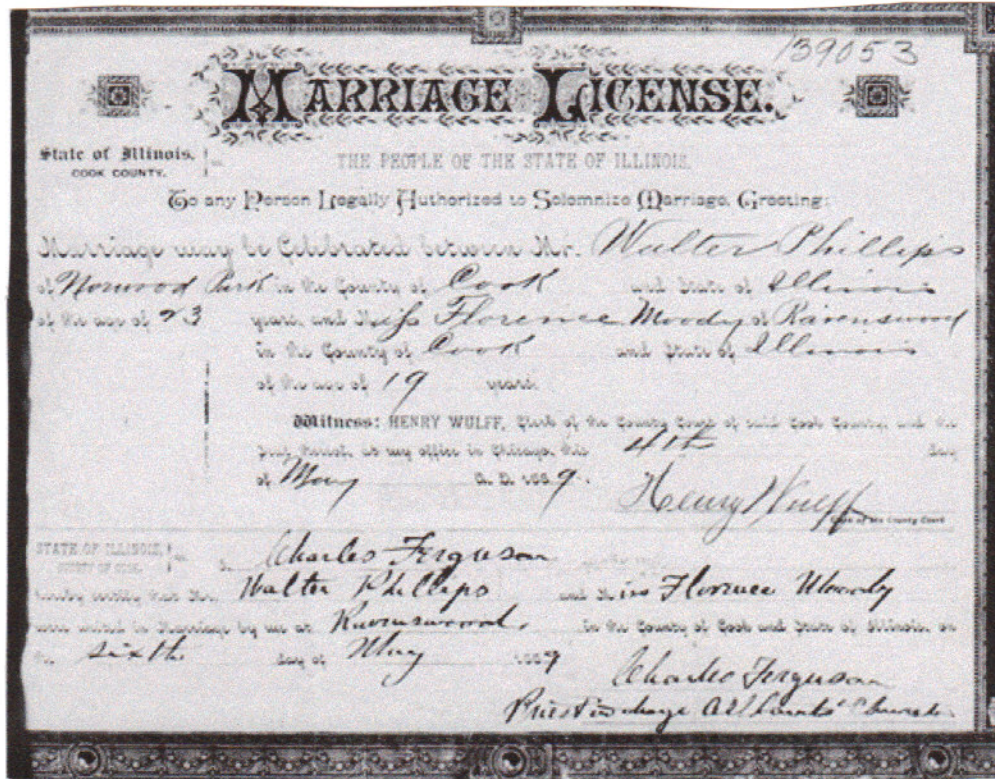 139053
MARRIAGE LICENSE.
State of Illinois,
COOK COUNTY.
THE PEOPLE OF THE STATE OF ILLINOIS,
To any Person Legally Authorized to Solemnize Marriage, Greeting:
Marriage may be Celebrated between Mr. Walter Phillips
of Norwood Park in the County of Cook and State of Illinois
of the age of 23 years, and Miss Florence Moody of Ravenswood
in the County of Cook and State of Illinois
of the age of 19 years.
Witness: HENRY WULFF, Clerk of the County Court of said Cook County, and the
Seal thereof, at my office in Chicago, this 4th day
of May A. D. 1889.
Henry Wulff
Clerk of the County Court
STATE OF ILLINOIS,
COUNTY OF COOK.
I, Charles Ferguson
hereby certify that Mr. Walter Phillips and Miss Florence Moody
were united in Marriage by me at Ravenswood, in the County of Cook and State of Illinois, on
the sixth day of May 1889
Charles Ferguson
Priest in charge All Saints' Church